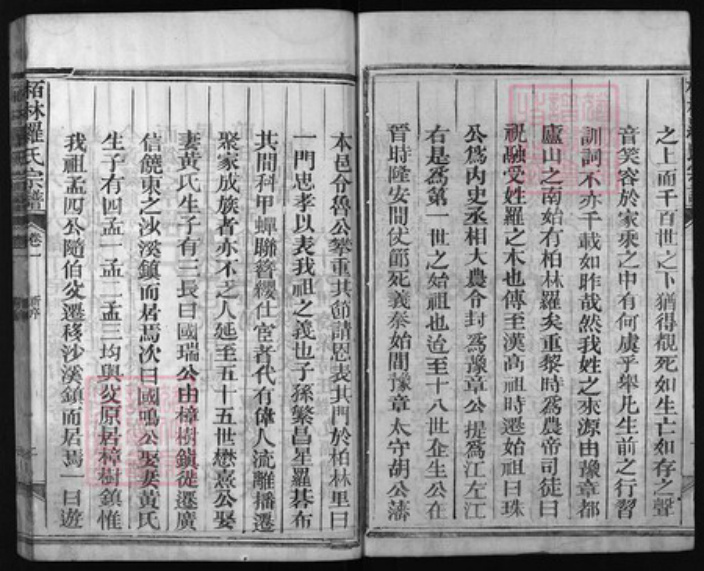 之上而千百世之下猶得覩死如生亡如存之聲
音笑容於家乘之中有何虞乎舉凡生前之行習
訓詞不亦千載如昨哉然我姓之來源由豫章都
廬山之南始有柏林羅矣重黎時爲農帝司徒曰
祝融受姓羅之木也傳至漢高祖時遷始祖曰珠
公爲内史丞相大農令封爲豫章公提爲江左江
右是爲第一世之始祖也迨至十八世企生公在
晉時隆安間仗節死義泰始間豫章太守胡公藩
本邑令魯公摰重其節請恩表其門於柏林里曰
一門忠孝以表我祖之義也子孫繁昌星羅碁布
其間科甲蟬聯簪纓仕宦者代有偉人流離播遷
聚家成族者亦不乏人延至五十五世懋熹公娶
妻黄氏生子有三長曰國瑞公由樟樹鎮徙遷廣
信饒東之沙溪鎮而居焉次曰國鳴公娶妻黄氏
生子有四孟一孟二孟三均與父原居樟樹鎮惟
我祖孟四公隨伯父遷移沙溪鎮而居焉一曰遊
柏林羅氏宗譜
卷一
新序